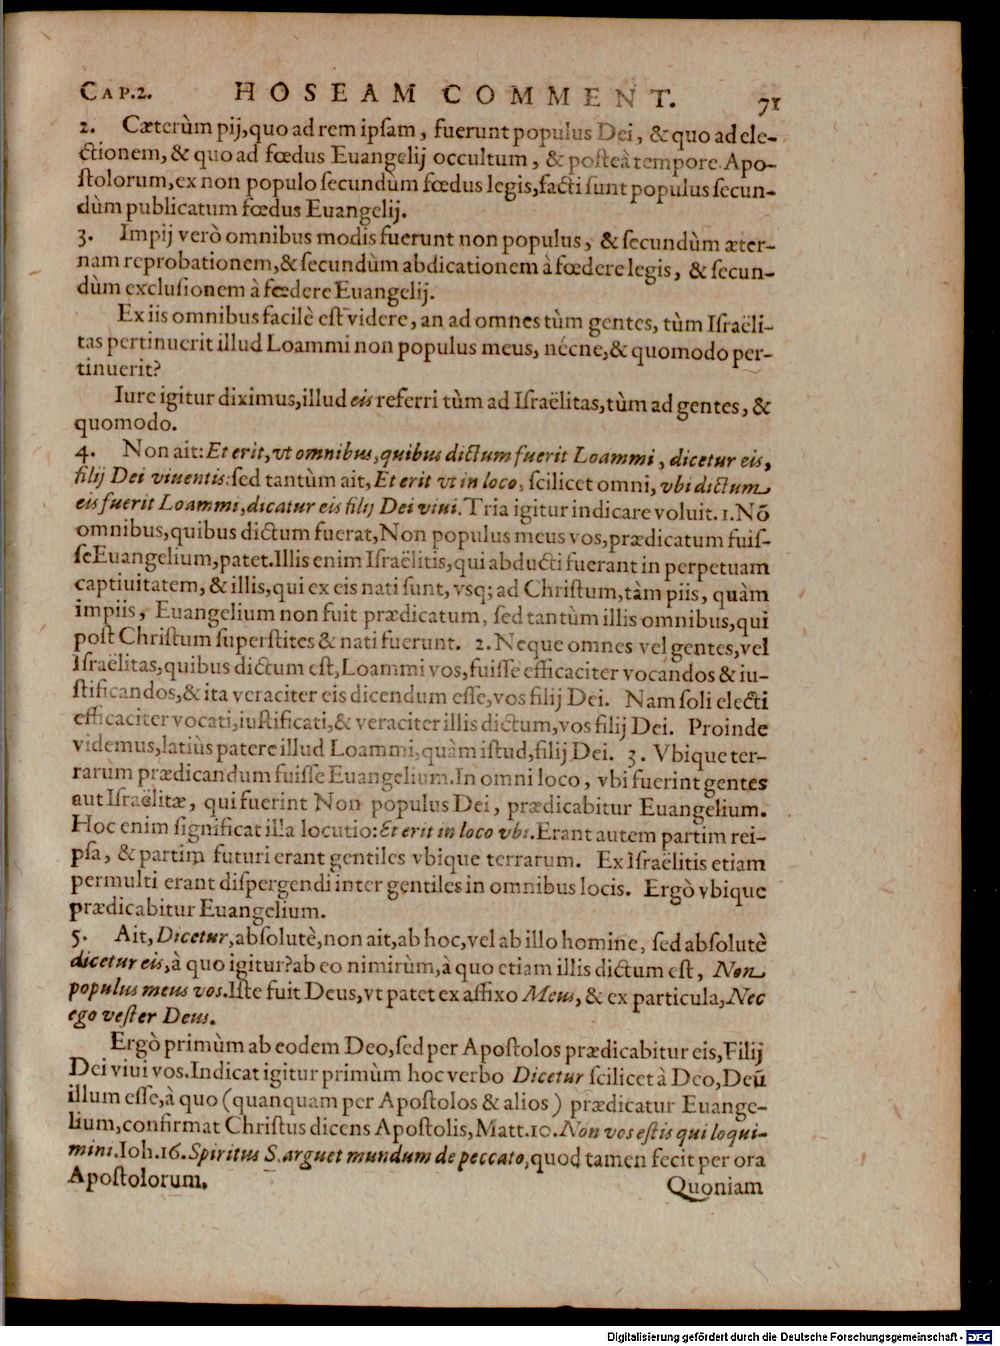 CAP.2. HOSEAM COMMENT. 71
2. Cæterùm pij, quo ad rem ipsam, fuerunt populus Dei, & quo ad ele-
ctionem, & quo ad fœdus Euangelij occultum, & posteà tempore Apo-
stolorum, ex non populo secundùm fœdus legis, facti sunt populus secun-
dùm publicatum fœdus Euangelij.
3. Impij verò omnibus modis fuerunt non populus, & secundùm æter-
nam reprobationem, & secundùm abdicationem à fœdere legis, & secun-
dùm exclusionem à fœdere Euangelij.
Ex iis omnibus facilè est videre, an ad omnes tùm gentes, tùm Israëli-
tas pertinuerit illud Loammi non populus meus, nécne, & quomodo per-
tinuerit?
Iure igitur diximus, illud eis referri tùm ad Israëlitas, tùm ad gentes, &
quomodo.
4. Non ait: Et erit, vt omnibus, quibus dictum fuerit Loammi, dicetur eis,
filij Dei viuentis: sed tantùm ait, Et erit vt in loco, scilicet omni, vbi dictum
eis fuerit Loammi, dicatur eis filij Dei viui. Tria igitur indicare voluit. 1. Nō
omnibus, quibus dictum fuerat, Non populus meus vos, prædicatum fuis-
se Euangelium, patet. Illis enim Israëlitis, qui abducti fuerant in perpetuam
captiuitatem, & illis, qui ex eis nati sunt, vsq; ad Christum, tàm piis, quàm
impiis, Euangelium non fuit prædicatum, sed tantùm illis omnibus, qui
post Christum superstites & nati fuerunt. 2. Neque omnes vel gentes, vel
Israëlitas, quibus dictum est, Loammi vos, fuisse efficaciter vocandos & iu-
stificandos, & ita veraciter eis dicendum esse, vos filij Dei. Nam soli electi
efficaciter vocati, iustificati, & veraciter illis dictum, vos filij Dei. Proinde
videmus, latiùs patere illud Loammi, quàm istud, filij Dei. 3. Vbique ter-
rarum prædicandum fuisse Euangelium. In omni loco, vbi fuerint gentes
aut Israëlitæ, qui fuerint Non populus Dei, prædicabitur Euangelium.
Hoc enim significat illa locutio: Et erit in loco vbi. Erant autem partim rei-
psa, & partim futuri erant gentiles vbique terrarum. Ex Israëlitis etiam
permulti erant dispergendi inter gentiles in omnibus locis. Ergò vbique
prædicabitur Euangelium.
5. Ait, Dicetur, absolutè, non ait, ab hoc, vel ab illo homine, sed absolutè
dicetur eis, à quo igitur? ab eo nimirùm, à quo etiam illis dictum est, Non
populus meus vos. Iste fuit Deus, vt patet ex affixo Meus, & ex particula, Nec
ego vester Deus.
Ergò primùm ab eodem Deo, sed per Apostolos prædicabitur eis, Filij
Dei viui vos. Indicat igitur primùm hoc verbo Dicetur scilicet à Deo, Deū
illum esse, à quo (quanquam per Apostolos & alios) prædicatur Euange-
lium, confirmat Christus dicens Apostolis, Matt. 10. Non vos estis qui loqui-
mini. Ioh. 16. Spiritus S. arguet mundum de peccato, quod tamen fecit per ora
Apostolorum. Quoniam
Digitalisierung gefördert durch die Deutsche Forschungsgemeinschaft - DFG